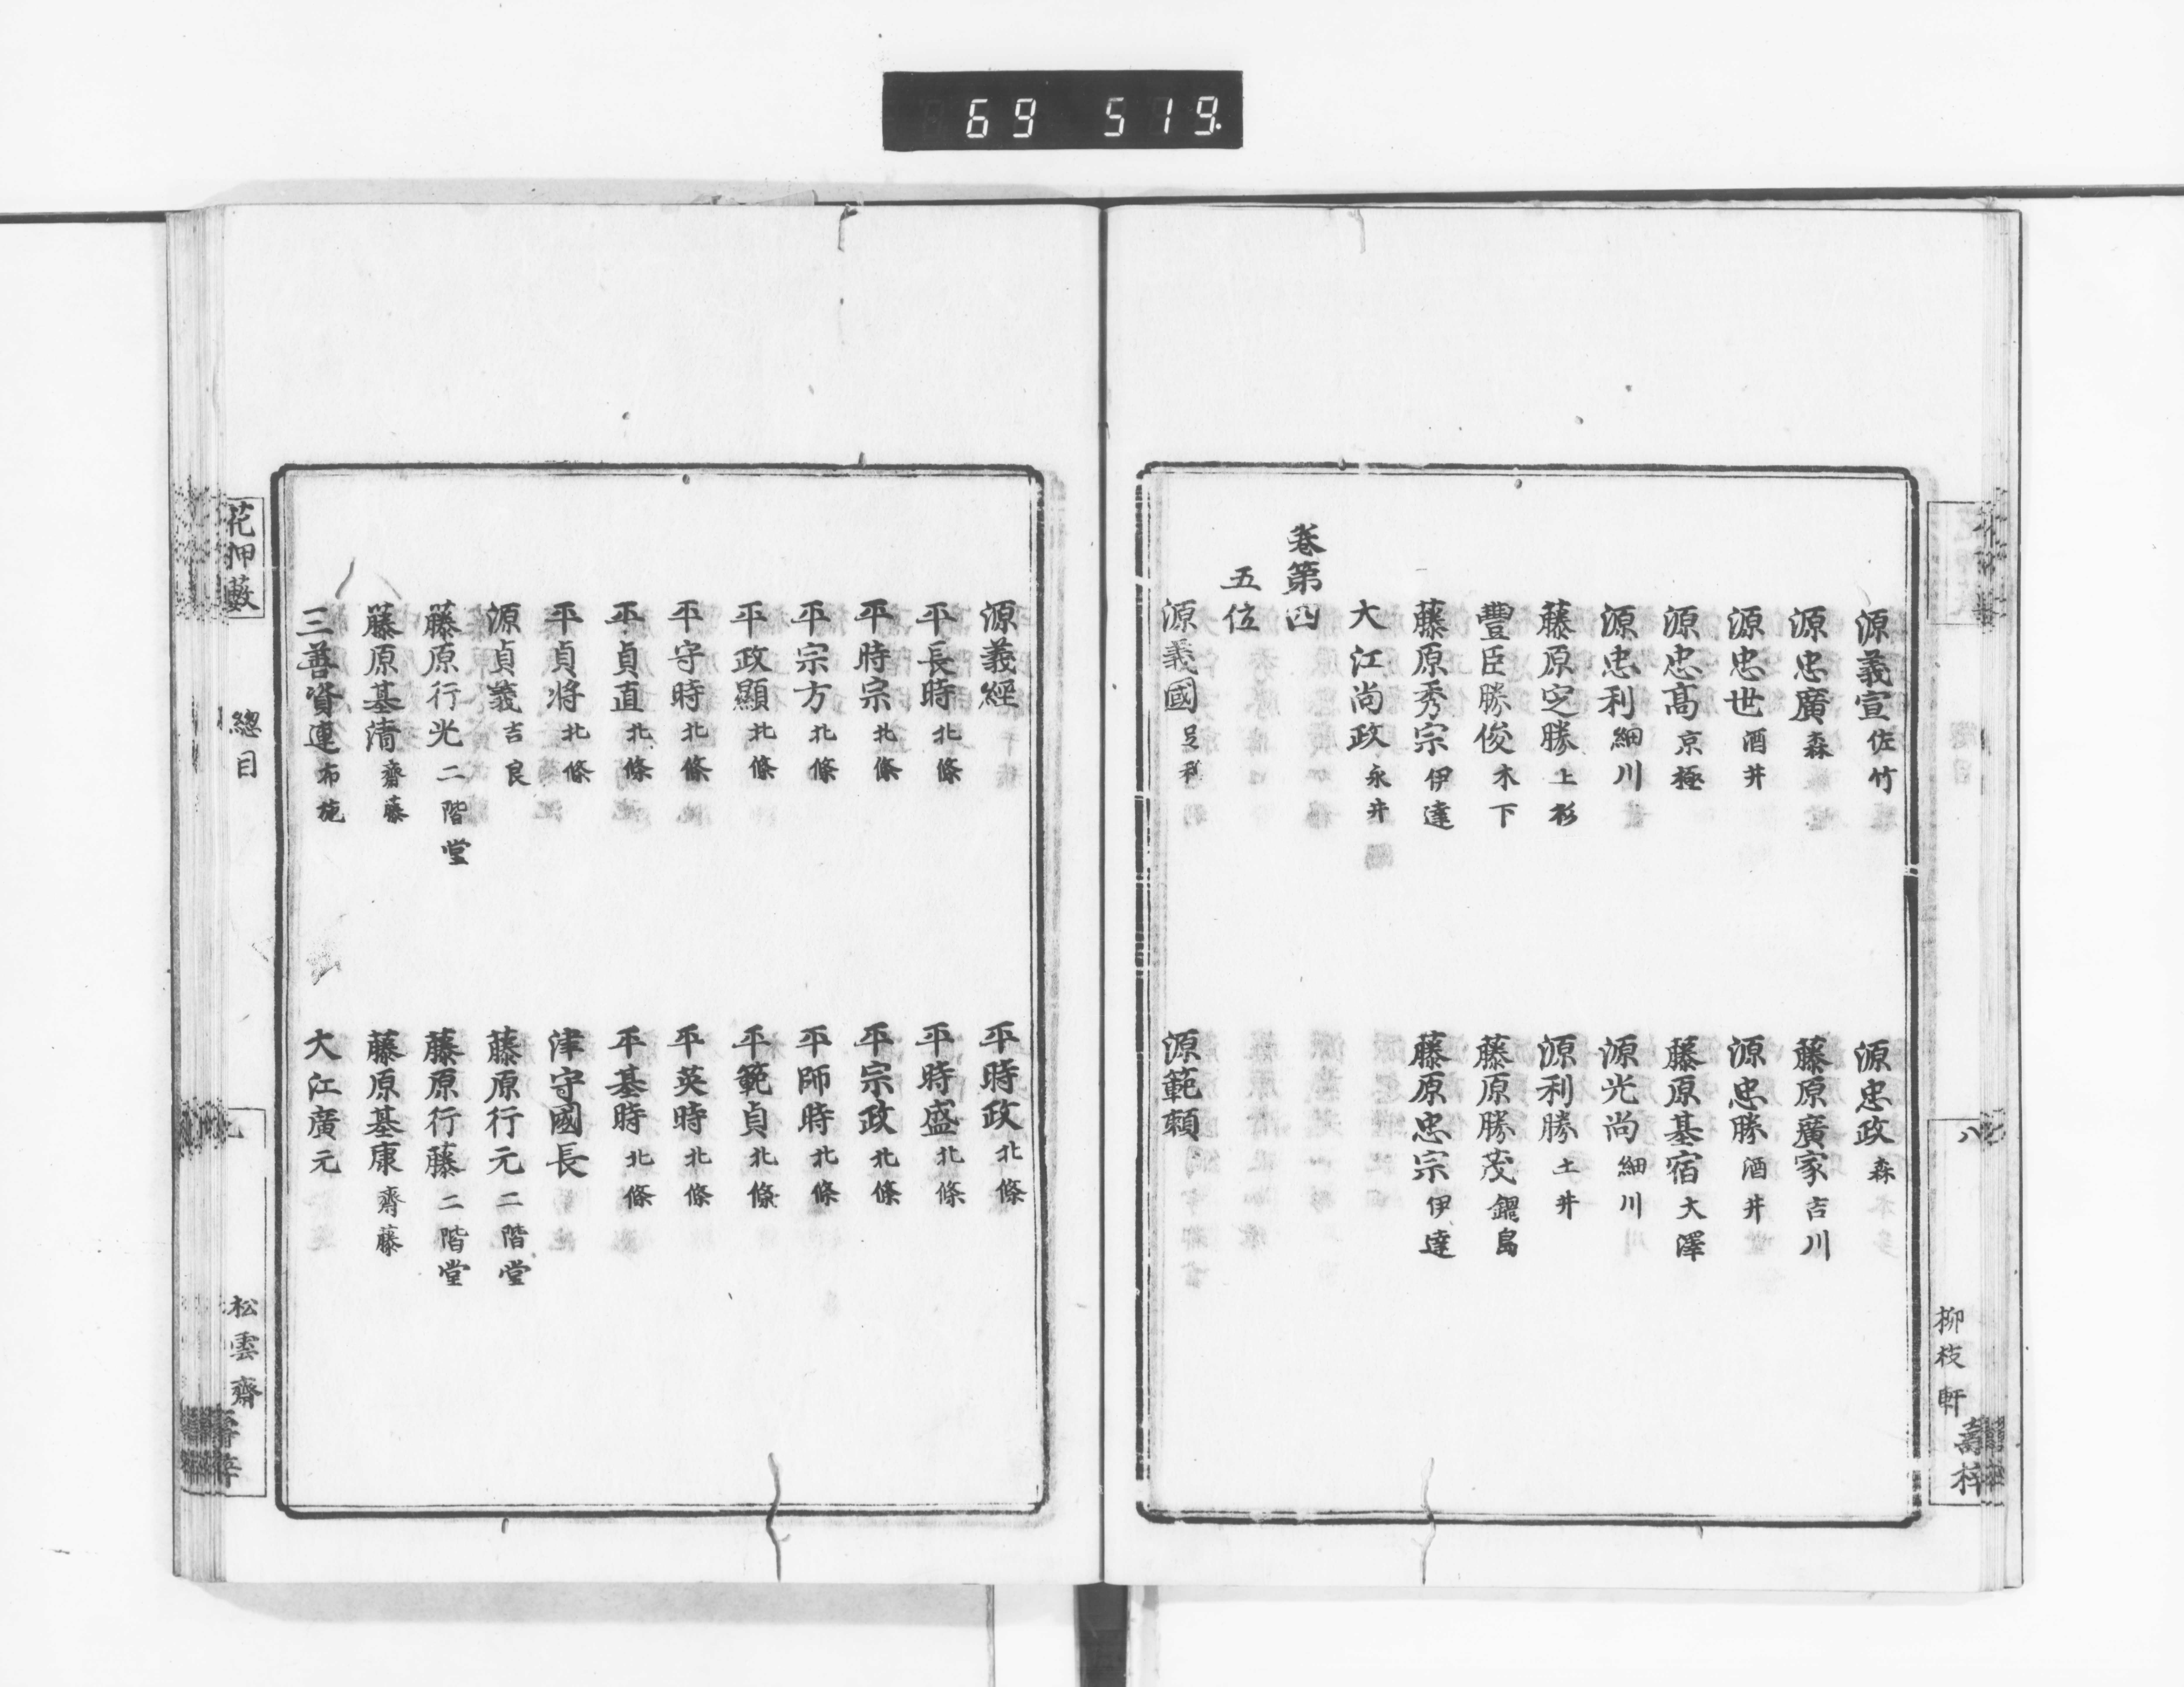 69 519.
源義宣 佐竹
源忠政 森
源忠廣 森
藤原廣家 吉川
源忠世 酒井
源忠勝 酒井
源忠高 京極
藤原基宿 大澤
源忠利 細川
源光尚 細川
藤原定勝 上杉
源利勝 土井
豐臣勝俊 木下
藤原勝茂 鍋島
藤原秀宗 伊達
藤原忠宗 伊達
大江尚政 永井
卷第四
五位
源義國 足利
源範頼
八
柳枝軒
壽梓
源義經
平時政 北條
平長時 北條
平時盛 北條
平時宗 北條
平宗政 北條
平宗方 北條
平師時 北條
平政顯 北條
平範貞 北條
平守時 北條
平英時 北條
平貞直 北條
平基時 北條
平貞將 北條
津守國長
源貞義 吉良
藤原行元 二階堂
藤原行光 二階堂
藤原行藤 二階堂
藤原基清 齋藤
藤原基康 齋藤
三善資連 布施
大江廣元
花押藪
總目
松雲齋